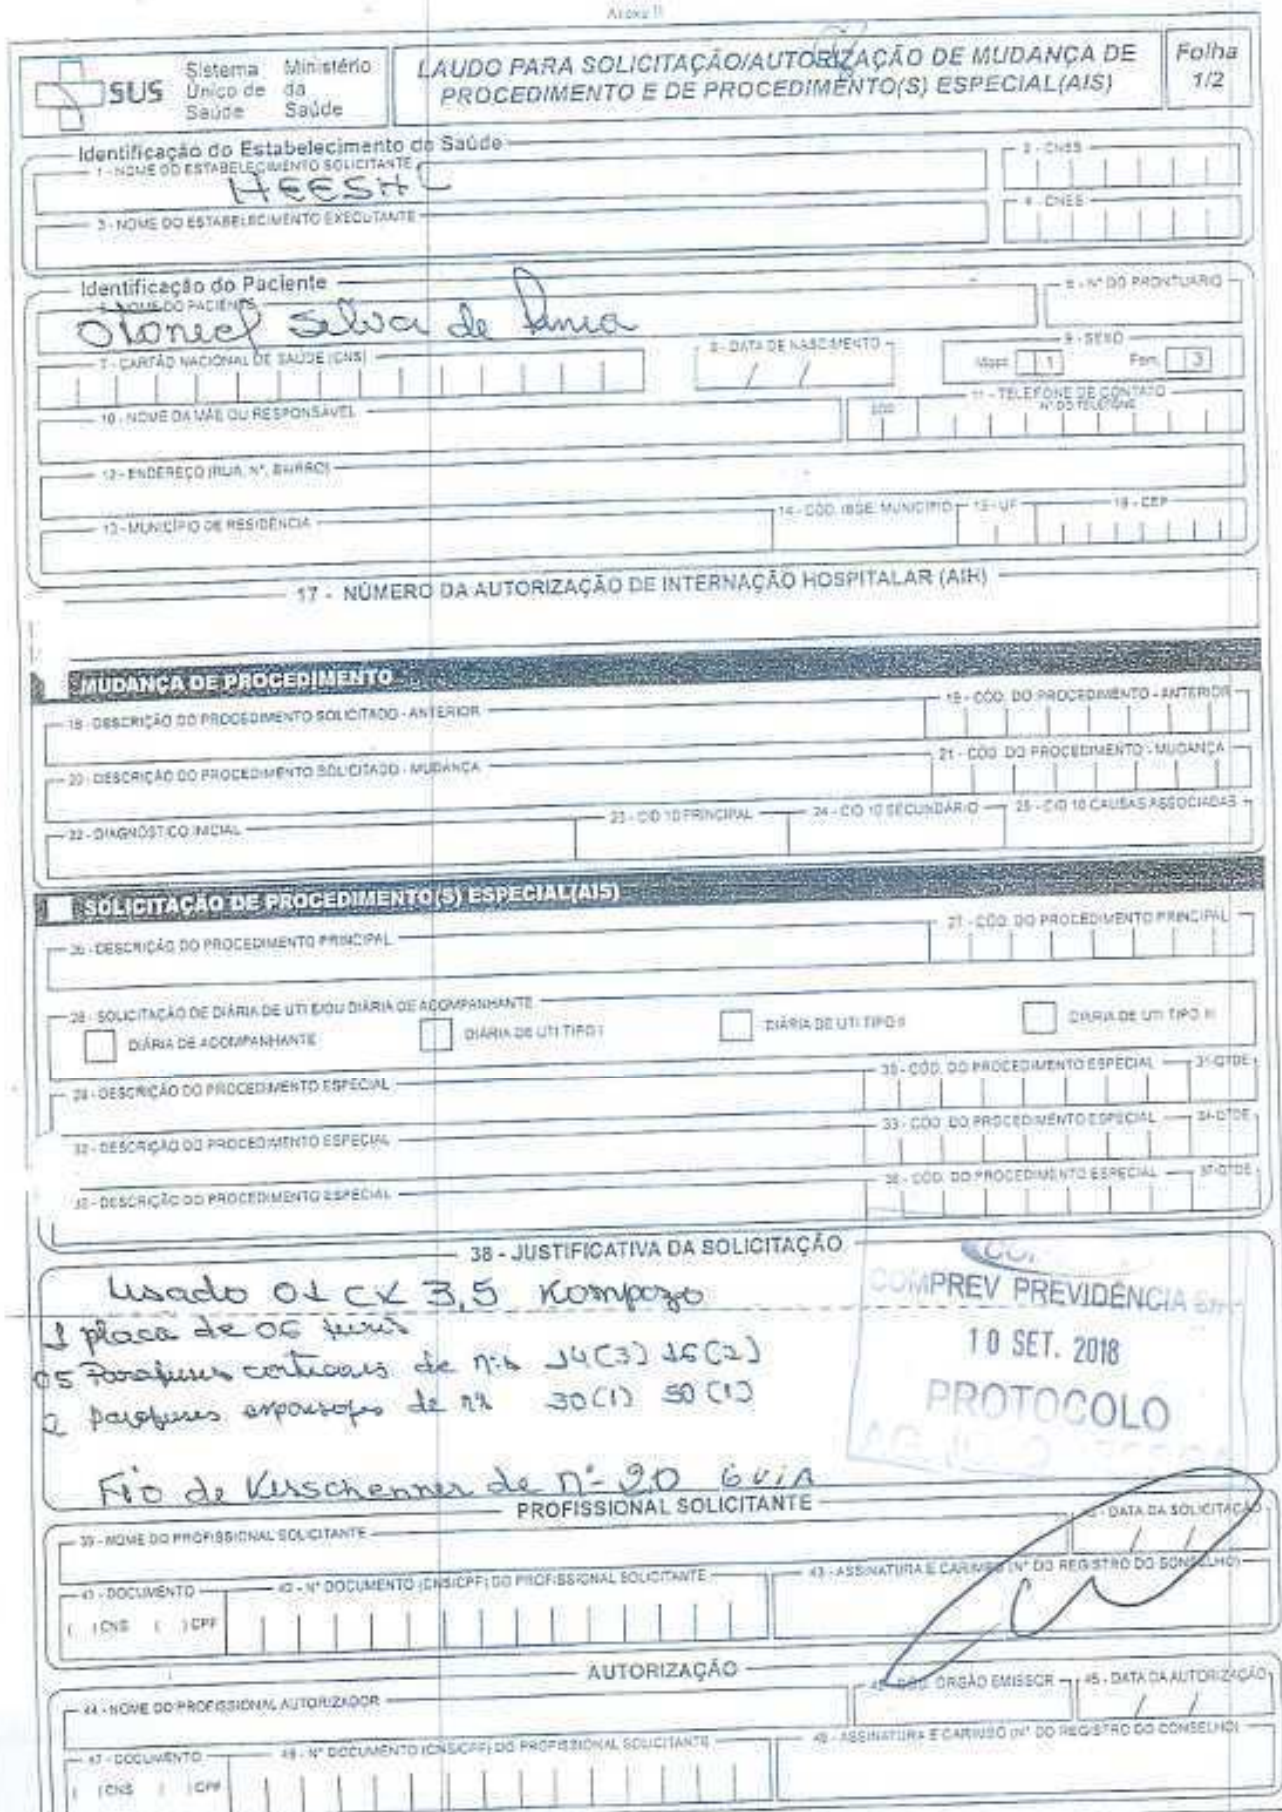 Anexo II
SUS Sistema Único de Saúde Ministério da Saúde
LAUDO PARA SOLICITAÇÃO/AUTORIZAÇÃO DE MUDANÇA DE
PROCEDIMENTO E DE PROCEDIMENTO(S) ESPECIAL(AIS)
Folha
1/2
Identificação do Estabelecimento de Saúde
1 - NOME DO ESTABELECIMENTO SOLICITANTE
2 - CNES
HEESHL
3 - NOME DO ESTABELECIMENTO EXECUTANTE
4 - CNES
Identificação do Paciente
5 - NOME DO PACIENTE
6 - Nº DO PRONTUÁRIO
Otoniel Silva de
7 - CARTÃO NACIONAL DE SAÚDE (CNS)
8 - DATA DE NASCIMENTO
9 - SEXO
/ /
Masc. 1 Fem. 3
10 - NOME DA MÃE OU RESPONSÁVEL
11 - TELEFONE DE CONTATO
DDD Nº DO TELEFONE
12 - ENDEREÇO (RUA, Nº, BAIRRO)
13 - MUNICÍPIO DE RESIDÊNCIA
14 - CÓD. IBGE. MUNICÍPIO
15 - UF
16 - CEP
17 - NÚMERO DA AUTORIZAÇÃO DE INTERNAÇÃO HOSPITALAR (AIH)
MUDANÇA DE PROCEDIMENTO
18 - DESCRIÇÃO DO PROCEDIMENTO SOLICITADO - ANTERIOR
19 - CÓD. DO PROCEDIMENTO - ANTERIOR
20 - DESCRIÇÃO DO PROCEDIMENTO SOLICITADO - MUDANÇA
21 - CÓD. DO PROCEDIMENTO - MUDANÇA
22 - DIAGNÓSTICO INICIAL
23 - CID 10 PRINCIPAL
24 - CID 10 SECUNDÁRIO
25 - CID 10 CAUSAS ASSOCIADAS
SOLICITAÇÃO DE PROCEDIMENTO(S) ESPECIAL(AIS)
26 - DESCRIÇÃO DO PROCEDIMENTO PRINCIPAL
27 - CÓD. DO PROCEDIMENTO PRINCIPAL
28 - SOLICITAÇÃO DE DIÁRIA DE UTI E/OU DIÁRIA DE ACOMPANHANTE
DIÁRIA DE ACOMPANHANTE
DIÁRIA DE UTI TIPO I
DIÁRIA DE UTI TIPO II
DIÁRIA DE UTI TIPO III
29 - DESCRIÇÃO DO PROCEDIMENTO ESPECIAL
30 - CÓD. DO PROCEDIMENTO ESPECIAL
31-QTDE
32 - DESCRIÇÃO DO PROCEDIMENTO ESPECIAL
33 - CÓD. DO PROCEDIMENTO ESPECIAL
34-QTDE
35 - DESCRIÇÃO DO PROCEDIMENTO ESPECIAL
36 - CÓD. DO PROCEDIMENTO ESPECIAL
37-QTDE
38 - JUSTIFICATIVA DA SOLICITAÇÃO
Usado 01 CX 3,5
1 placa de 06 furos
05 Parafusos corticais de nºs 14(3) 16(2)
2 parafusos esponjosos de nº 30(1) 50(1)
Fio de Kirschenner de nº 2.0 guia
COMPREV PREVIDÊNCIA S/A
10 SET. 2018
PROTOCOLO
PROFISSIONAL SOLICITANTE
39 - NOME DO PROFISSIONAL SOLICITANTE
40 - DATA DA SOLICITAÇÃO
/ /
41 - DOCUMENTO
42 - Nº DOCUMENTO (CNS/CPF) DO PROFISSIONAL SOLICITANTE
43 - ASSINATURA E CARIMBO (Nº DO REGISTRO DO CONSELHO)
( ) CNS ( ) CPF
AUTORIZAÇÃO
44 - NOME DO PROFISSIONAL AUTORIZADOR
CÓD. ÓRGÃO EMISSOR
45 - DATA DA AUTORIZAÇÃO
/ /
47 - DOCUMENTO
48 - Nº DOCUMENTO (CNS/CPF) DO PROFISSIONAL SOLICITANTE
ASSINATURA E CARIMBO (Nº DO REGISTRO DO CONSELHO)
( ) CNS ( ) CPF